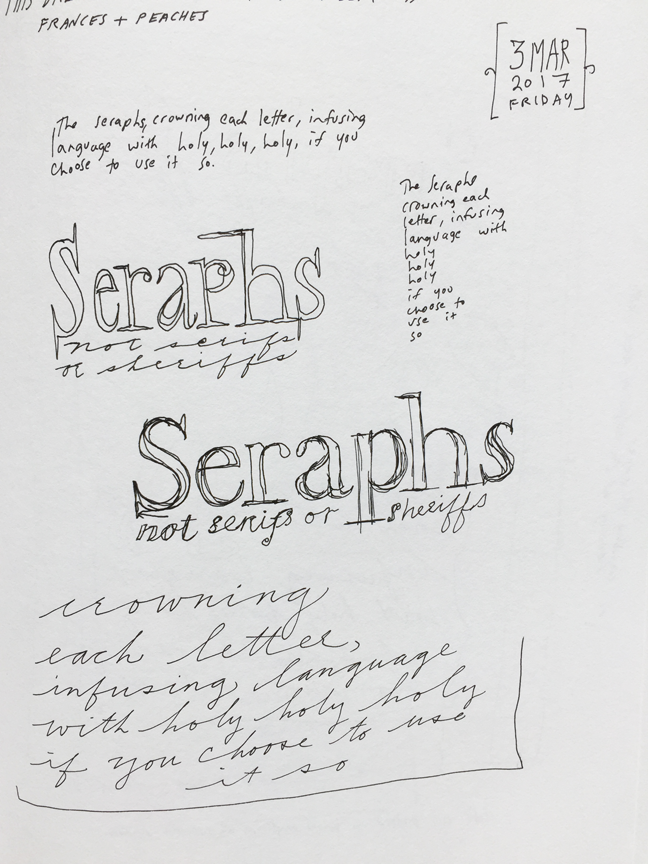 FRANCES + PEACHES
3 MAR
2017
FRIDAY
The seraphs, crowning each letter, infusing
language with holy, holy, holy, if you
choose to use it so.
The Seraphs
crowning each
letter, infusing
language with
holy
holy
holy
if you
choose to
use it
so
Seraphs
not serifs
or sheriffs
Seraphs
not serifs or sheriffs
crowning
each letter,
infusing language
with holy holy holy
if you choose to use
it so